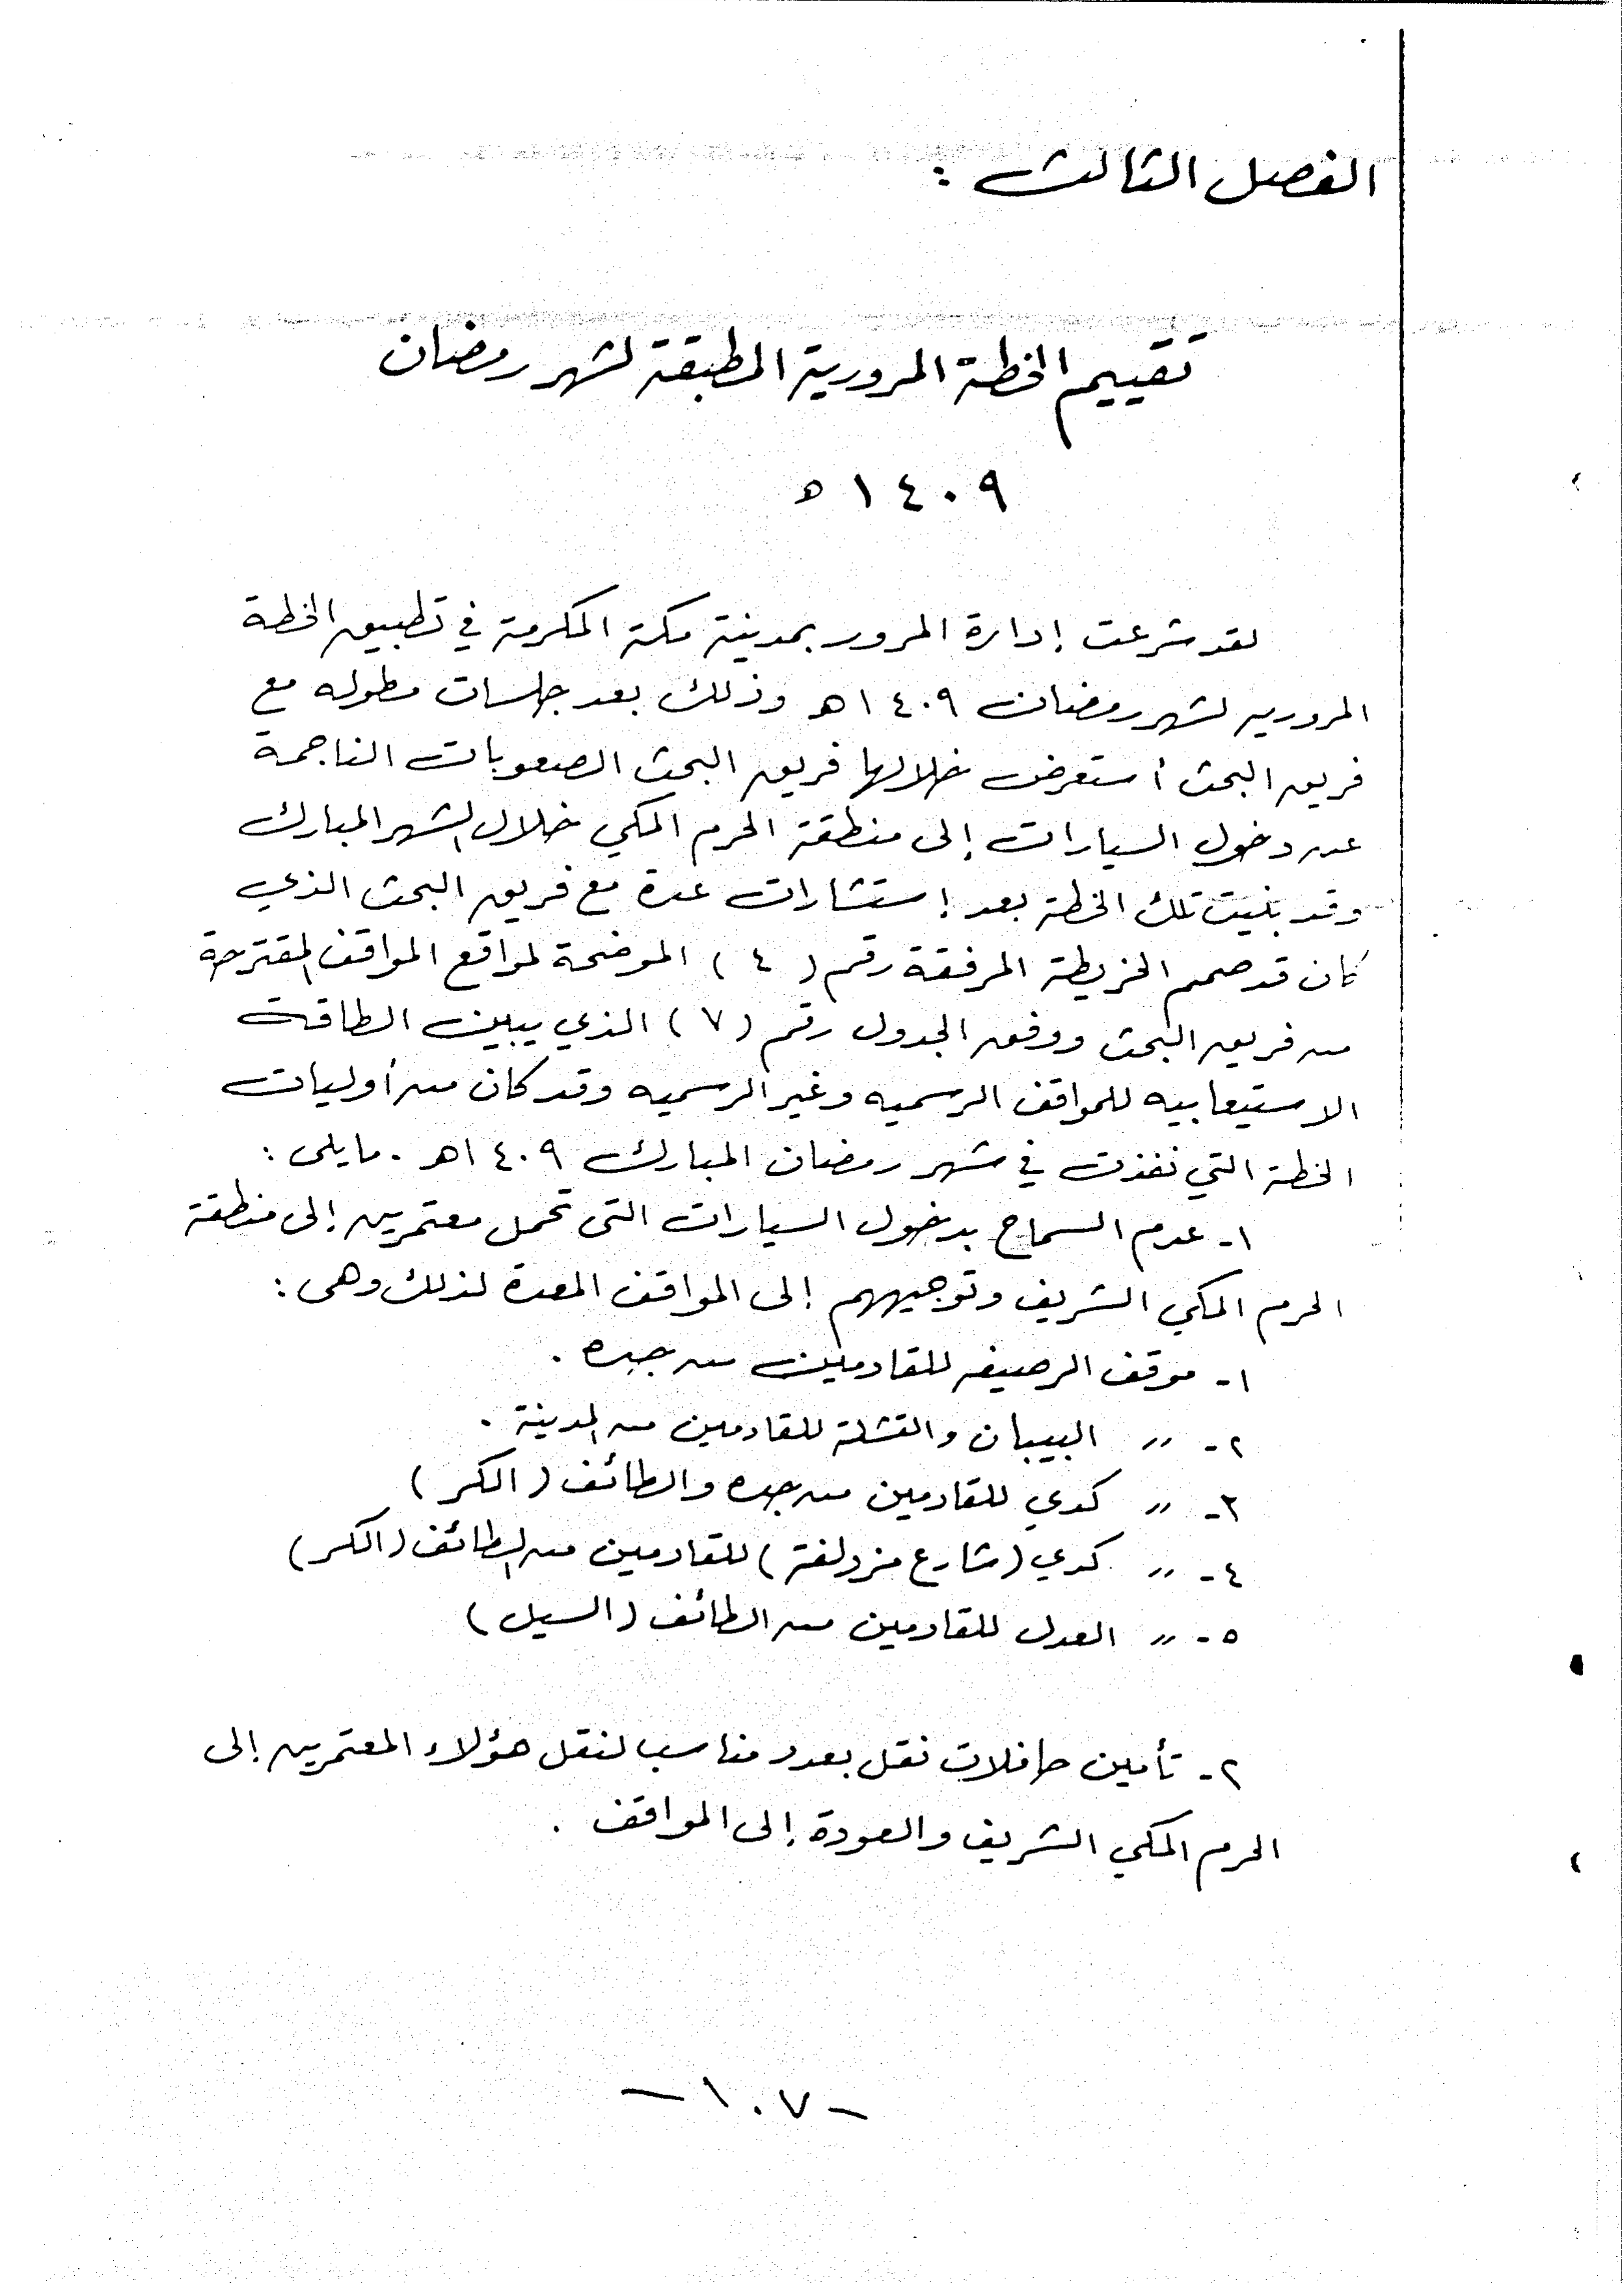 الفصل الثالث :
تقييم الخطة المرورية المطبقة لشهر رمضان
١٤٠٩ ه
لقد شرعت إدارة المرور بمدينة مكة المكرمة في تطبيق الخطة
المروريه لشهر رمضان ١٤٠٩ه وذلك بعد جلسات مطوله مع
فريق البحث أستعرض خلالها فريق البحث الصعوبات الناجمة
عن دخول السيارات إلى منطقة الحرم المكي خلال الشهر المبارك
وقد بنيت تلك الخطة بعد إستشارات عدة مع فريق البحث الذي
كان قد صمم الخريطة المرفقة رقم ( ٤ ) الموضحة لمواقع المواقف المقترحة
من فريق البحث ووفق الجدول رقم (٧) الذي يبين الطاقة
الاستيعابيه للمواقف الرسميه وغير الرسميه وقد كان من أوليات
الخطة التي نفذت في شهر رمضان المبارك ١٤٠٩ه . مايلى :
١- عدم السماح بدخول السيارات التى تحمل معتمرين إلى منطقة
الحرم المكي الشريف وتوجيههم إلى المواقف المعدة لذلك وهى :
١- موقف الرصيفه للقادمين من جده .
٢- ,, البيبان والقشلة للقادمين من المدينة .
٣- ,, كدي للقادمين من جده والطائف ( الكر )
٤- ,, كدي (شارع مزدلفة ) للقادمين من الطائف (الكر)
٥- ,, العدل للقادمين من الطائف ( السيل )
٢- تأمين حافلات نقل بعدد مناسب لنقل هؤلاء المعتمرين إلى
الحرم المكي الشريف والعودة إلى المواقف .
- ١٠٧ -